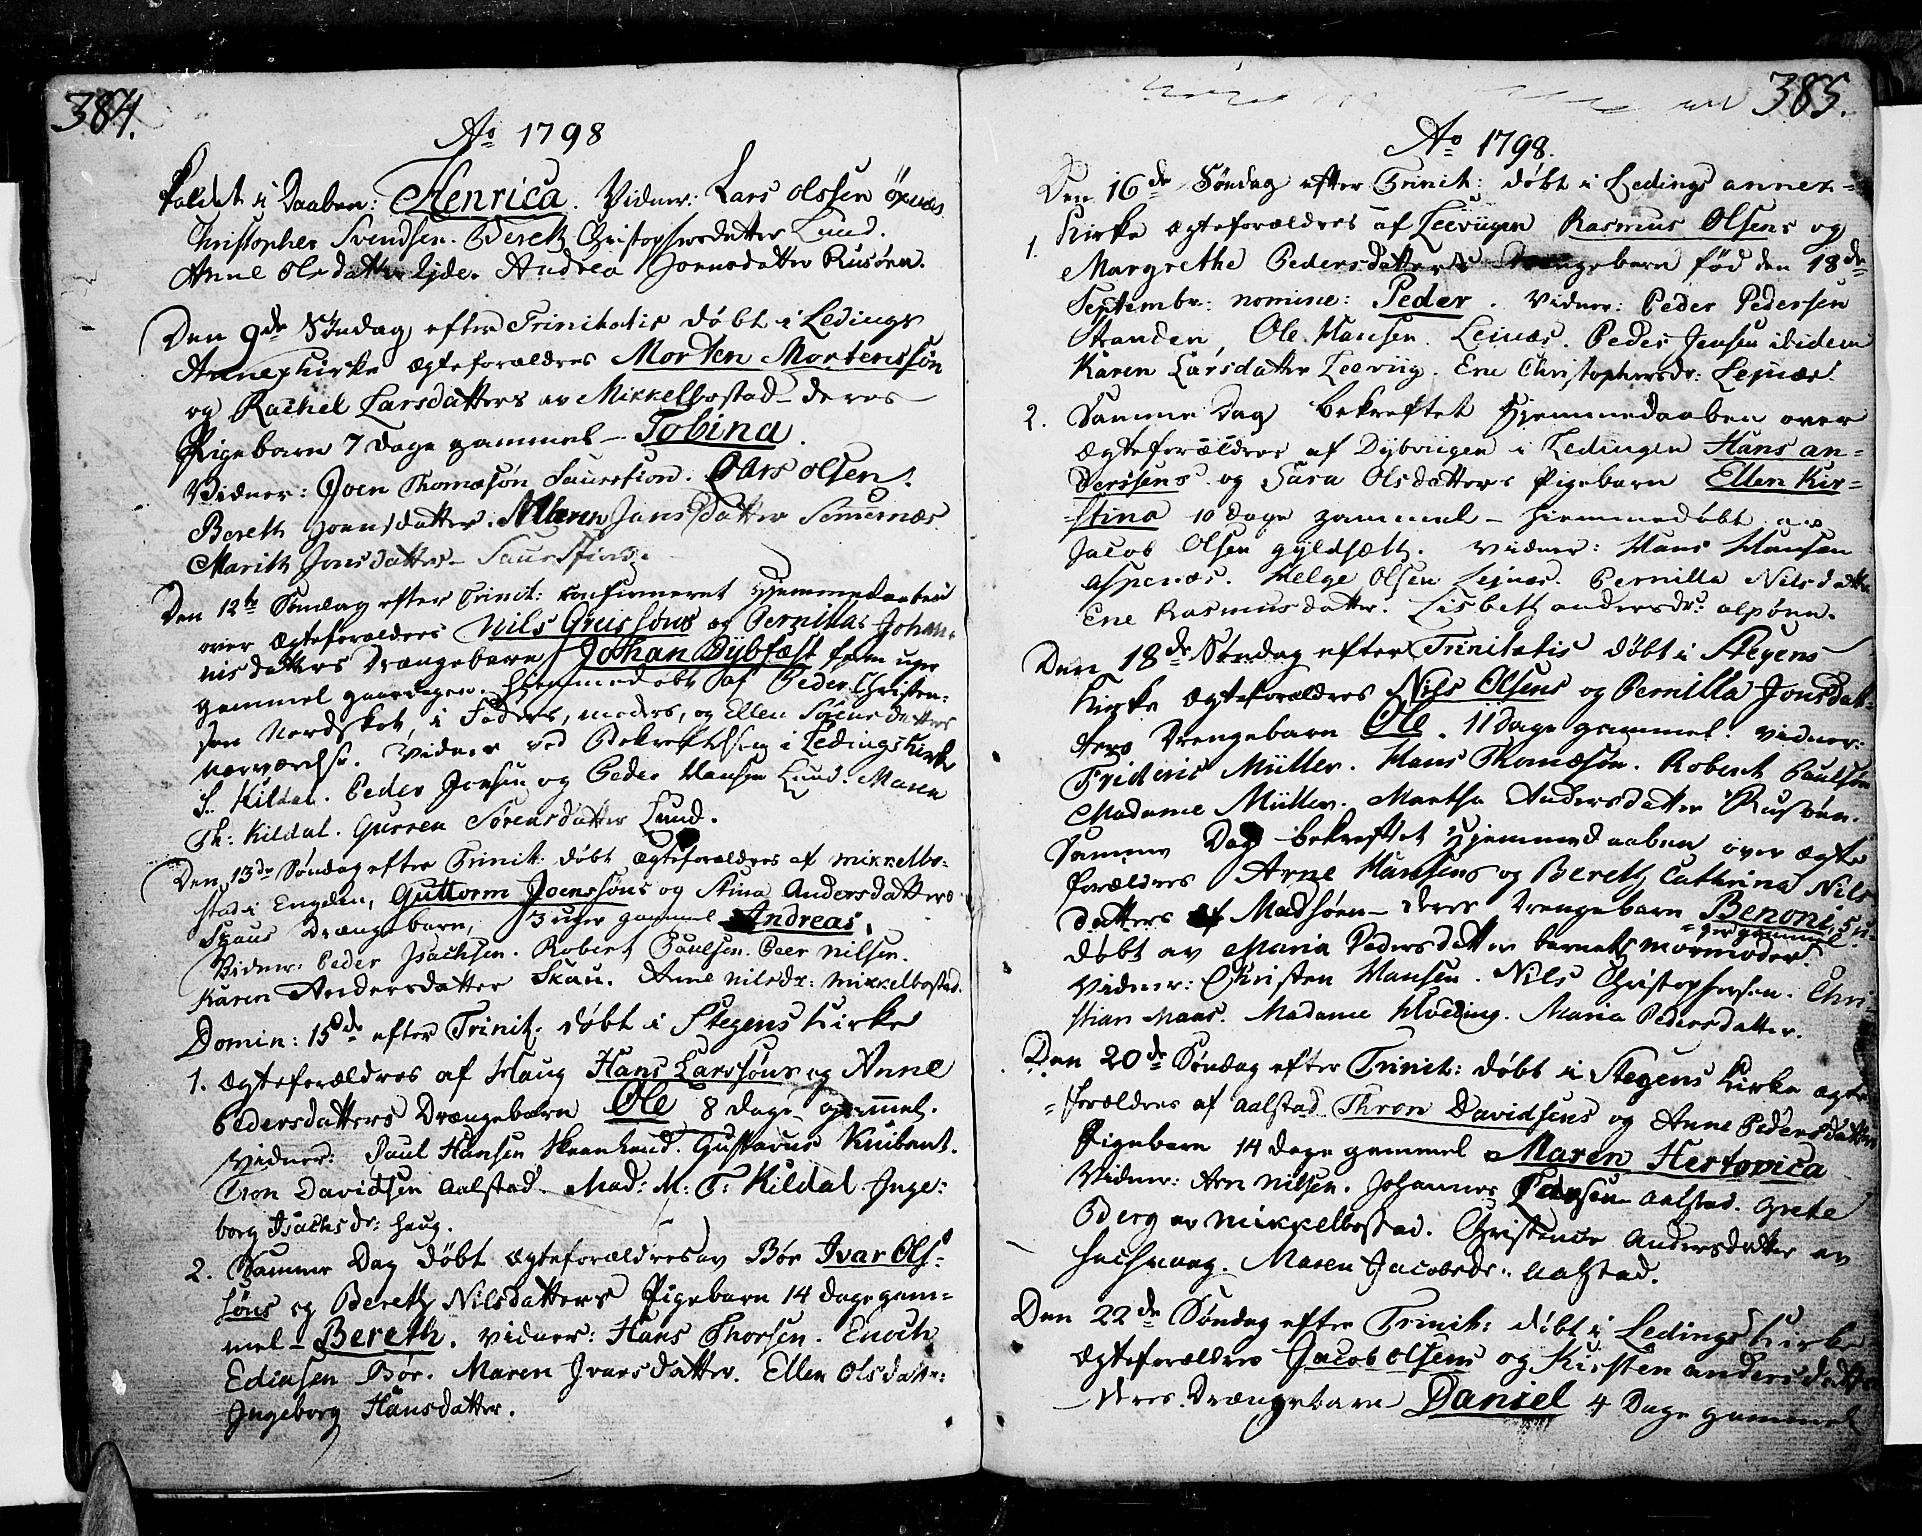 384.
Ao 1798
kaldet i Daaben: Henrica. Vidner: Lars Olssen
Christopher Svendsen. Bereth Christophersdatter Lund.
Anne Olsdatter Andrea Joensdatter Rusøen.
Den 9de Søndag efter Trinitatis døbt i Ledings
Annexkirke ægteforældres Morten Mortenssøn
og Rachel Larsdatters av Mikkelbostad deres
Pigebarn 7 dage gammel - Tobina.
Vidner: Joen Thomæsøn Laurstion. Lars Olsen.
Bereth Joensdatter. Maren Jansdatter
Marith Jonsdatter -
Den 12te Søndag efter Trinit: confirmeret Hjemmedaaben
over ægteforældres Nils Greissøns og Pernillas Johan-
nisdatters Drængebarn Johan Dybfæst fem uger
gammel hjemmedøbt af Peder Christen-
sen Nordskot, i Faders, moders, og Ellen Sørensdatters
Nærværelse. Vidner ved Bekreftelsen i Ledings Kirke
S. Kildal. Peder Jensen og Peder Hansen Lund. Maren
Th: Kildal. Gurren Sørensdatter Lund.
Den 13de Søndag efter Trinit: døbt ægteforældres af Mikkelbo-
stad i Engelen, Guttorm Joenssøns og Stina Andersdatters
Skaus Drængebarn, 3 uger gammel Andreas.
Vidner: Peder Isachsen. Robert Paulsen. Peer Nilsen.
Karen Andersdatter Skau. Anne Nilsdr: Mikkelbostad.
Domin: 15de efter Trinit: døbt i Stegens Kirke
1. ægteforældres af Haug Hans Larssøns og Anne
Pedersdatters Drængebarn Ole 8 dage gammel.
Vidner: Paul Hansen Gustavus Knibant.
Tron Davidsen Aalstad. Mad: M: T: Kildal. Inge-
borg Isachsdr: Haug.
2. Samme Dag døbt ægteforældres av Bøe Ivar Ols-
søns og Bereth Nilsdatters Pigebarn 14 dage gam-
mel - Bereth. Vidner: Hans Thorsen. Enoch
Ediasen Bøe. Maren Ivarsdatter. Ellen Olsdatr:
Ingeborg Hansdatter.
385.
Ao 1798.
Den 16de Søndag efter Trinit: døbt i Ledings annex-
1. Kirke ægteforældres af Leeviigen Rasmus Olsens og
Margrethe Pedersdatters Drængebarn fød den 18de
Septembr: nomine: Peder. Vidner: Peder Pedersen
Stranden, Ole Hansen. Leinæs. Peder Jensen ibidem
Karen Larsdatter Leeviig. Ene Christophersdr: Leinæs.
2. Samme Dag bekreftet Hjemmedaaben over
ægteforældres af Dybviigen i Ledingen Hans An-
derssens og Sara Olsdatters Pigebarn Ellen Kir-
stina 10 dage gammel - hiemmedøbt av
Jacob Olsen Vidner: Hans Hansen
Aspenæs. Helge Olsen Leinæs. Pernilla Nilsdatter
Ene Rasmusdatter. Lisbeth Andersdr: Alpøen.
Den 18de Søndag efter Trinitatis døbt i Stegens
Kirke ægteforældres Nils Olsens og Pernilla Jonsdat-
ters Drengebarn Ole. 11 dage gammel. Vidner:
Frideric Müller. Hans Thomæsøn. Robert Paulsøn
Madame Müller. Martha Andersdatter Rusøen.
Samme Dag bekreftet Hjemmedaaben over ægte
forældres Arne Hansens og Bereth Cathrina Nils
datters af Madsøen - deres Drengebarn Benoni, 5 u-
ger gammel.
døbt av Maria Pedersdatter barnets mormoder.
Vidner: Christen Hansen. Nils Christophersen. Chri-
stian Maas. Madame Hveding. Maria Pedersdatter.
Den 20de Søndag efter Trinit: døbt i Stegens Kirke ægte
=forældres af Aalstad Thron Davidsens og Anne Pedersdatters
Pigebarn 14 dage gammel Maren Hertovica
Vidner: Arn Nilsen. Johannes Aalstad. Grete
Berg av Mikkelbostad. Christence Andersdatter av
Maren Jacobsdr: Aalstad.
Den 22de Søndag efter Trinit: døbt i Ledings Kirke
ægteforældres Jacob Olsens og Kirsten Andersdatter
deres Drængebarn Daniel 4 Dage gammel